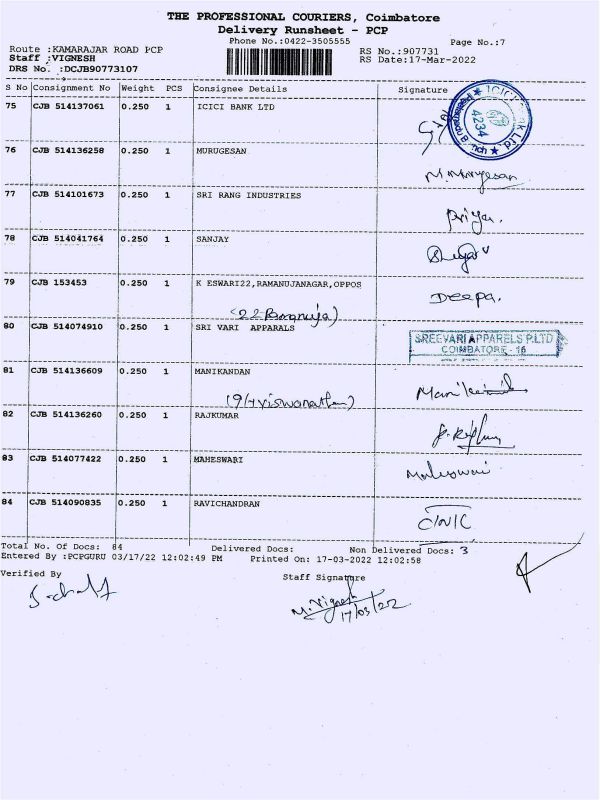 THE PROFESSIONAL COURIERS, Coimbatore
Delivery Runsheet - PCP
Phone No.:0422-3505555 Page No.:7
Route :KAMARAJAR ROAD PCP RS No.:907731
Staff :VIGNESH RS Date:17-Mar-2022
DRS No. :DCJB90773107
S No Consignment No Weight PCS Consignee Details Signature
75 CJB 514137061 0.250 1 ICICI BANK LTD
4234
76 CJB 514136258 0.250 1 MURUGESAN
M. Murugesan
77 CJB 514101673 0.250 1 SRI RANG INDUSTRIES
Priya.
78 CJB 514041764 0.250 1 SANJAY
79 CJB 153453 0.250 1 K ESWARI22,RAMANUJANAGAR,OPPOS
Deepa.
80 CJB 514074910 0.250 1 SRI VARI APPARALS
SREEVARI APPARELS P.LTD
COIMBATORE - 16
81 CJB 514136609 0.250 1 MANIKANDAN
82 CJB 514136260 0.250 1 RAJKUMAR
83 CJB 514077422 0.250 1 MAHESWARI
Maheswari
84 CJB 514090835 0.250 1 RAVICHANDRAN
Total No. Of Docs: 84 Delivered Docs: Non Delivered Docs: 3
Entered By :PCPGURU 03/17/22 12:02:49 PM Printed On: 17-03-2022 12:02:58
Verified By Staff Signature
M. Vignesh
17/03/22